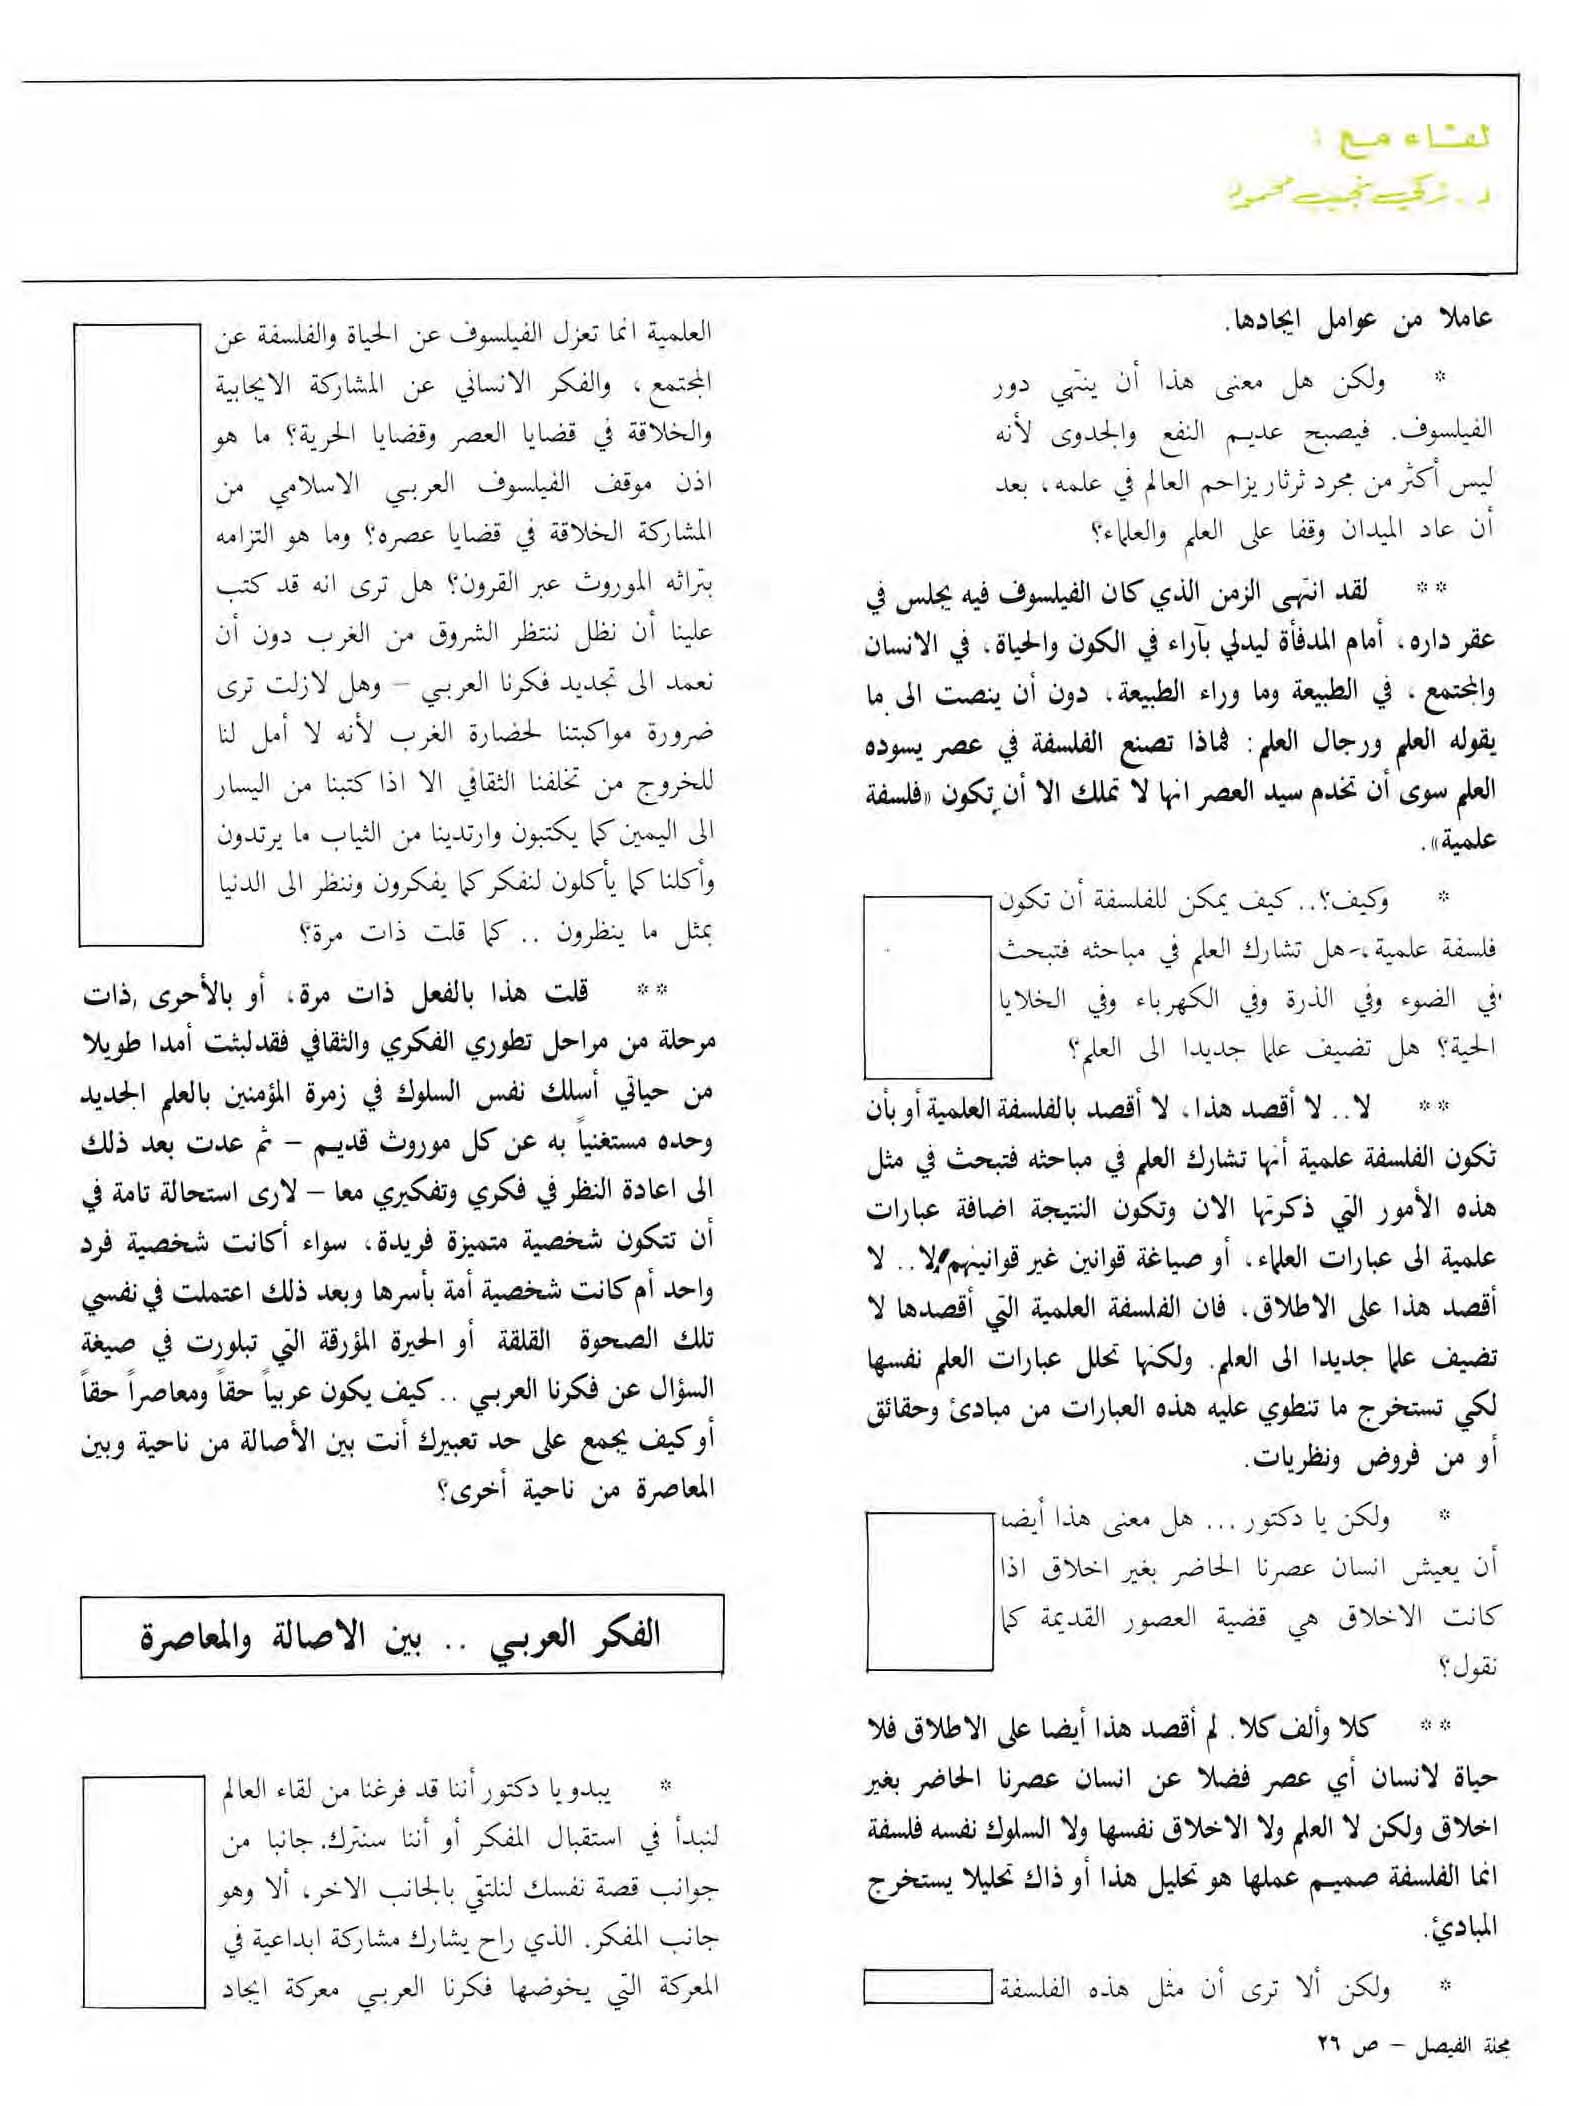 لقاء مع :
د. زكي نجيب محمود
عاملا من عوامل ايجادها.
* ولكن هل معنى هذا أن ينتهي دور
الفيلسوف. فيصبح عديم النفع والجدوى لأنه
ليس أكثر من مجرد ثرثار يزاحم العالم في علمه، بعد
أن عاد الميدان وقفا على العلم والعلماء؟
** لقد انتهى الزمن الذي كان الفيلسوف فيه يجلس في
عقر داره، أمام المدفأة ليدلي بآراء في الكون والحياة، في الانسان
والمجتمع، في الطبيعة وما وراء الطبيعة، دون أن ينصت الى ما
يقوله العلم ورجال العلم: فماذا تصنع الفلسفة في عصر يسوده
العلم سوى أن تخدم سيد العصر انها لا تملك الا أن تكون «فلسفة
علمية».
* وكيف؟.. كيف يمكن للفلسفة أن تكون
فلسفة علمية، هل تشارك العلم في مباحثه فتبحث
في الضوء وفي الذرة وفي الكهرباء وفي الخلايا
الحية؟ هل تضيف علما جديدا الى العلم؟
** لا.. لا أقصد هذا، لا أقصد بالفلسفة العلمية أو بأن
تكون الفلسفة علمية أنها تشارك العلم في مباحثه فتبحث في مثل
هذه الأمور التي ذكرتها الان وتكون النتيجة اضافة عبارات
علمية الى عبارات العلماء، أو صياغة قوانين غير قوانينهم لا.. لا
أقصد هذا على الاطلاق، فان الفلسفة العلمية التي أقصدها لا
تضيف علما جديدا الى العلم. ولكنها تحلل عبارات العلم نفسها
لكي تستخرج ما تنطوي عليه هذه العبارات من مبادئ وحقائق
أو من فروض ونظريات.
* ولكن يا دكتور... هل معنى هذا أيضا
أن يعيش انسان عصرنا الحاضر بغير اخلاق اذا
كانت الاخلاق هي قضية العصور القديمة كما
نقول؟
** كلا وألف كلا. لم أقصد هذا أيضا على الاطلاق فلا
حياة لانسان أي عصر فضلا عن انسان عصرنا الحاضر بغير
اخلاق ولكن لا العلم ولا الاخلاق نفسها ولا السلوك نفسه فلسفة
انما الفلسفة صميم عملها هو تحليل هذا أو ذاك تحليلا يستخرج
المبادئ.
* ولكن ألا ترى أن مثل هذه الفلسفة
العلمية انما تعزل الفيلسوف عن الحياة والفلسفة عن
المجتمع، والفكر الانساني عن المشاركة الايجابية
والخلاقة في قضايا العصر وقضايا الحرية؟ ما هو
اذن موقف الفيلسوف العربي الاسلامي من
المشاركة الخلاقة في قضايا عصره؟ وما هو التزامه
بتراثه الموروث عبر القرون؟ هل ترى انه قد كتب
علينا أن نظل ننتظر الشروق من الغرب دون أن
نعمد الى تجديد فكرنا العربي – وهل لازلت ترى
ضرورة مواكبتنا لحضارة الغرب لأنه لا أمل لنا
للخروج من تخلفنا الثقافي الا اذا كتبنا من اليسار
الى اليمين كما يكتبون وارتدينا من الثياب ما يرتدون
وأكلنا كما يأكلون لنفكر كما يفكرون وننظر الى الدنيا
بمثل ما ينظرون .. كما قلت ذات مرة؟
** قلت هذا بالفعل ذات مرة، أو بالأحرى ذات
مرحلة من مراحل تطوري الفكري والثقافي فقد لبثت أمدا طويلا
من حياتي أسلك نفس السلوك في زمرة المؤمنين بالعلم الجديد
وحده مستغنياً به عن كل موروث قديم – ثم عدت بعد ذلك
الى اعادة النظر في فكري وتفكيري معا – لارى استحالة تامة في
أن تتكون شخصية متميزة فريدة، سواء أكانت شخصية فرد
واحد أم كانت شخصية أمة بأسرها وبعد ذلك اعتملت في نفسي
تلك الصحوة القلقة أو الحيرة المؤرقة التي تبلورت في صيغة
السؤال عن فكرنا العربي .. كيف يكون عربياً حقاً ومعاصراً حقاً
أو كيف يجمع على حد تعبيرك أنت بين الأصالة من ناحية وبين
المعاصرة من ناحية أخرى؟
الفكر العربي .. بين الاصالة والمعاصرة
* يبدو يا دكتور أننا قد فرغنا من لقاء العالم
لنبدأ في استقبال المفكر أو أننا سنترك. جانبا من
جوانب قصة نفسك لنلتقي بالجانب الاخر، ألا وهو
جانب المفكر. الذي راح يشارك مشاركة ابداعية في
المعركة التي يخوضها فكرنا العربي معركة ايجاد
مجلة الفيصل – ص ٢٦